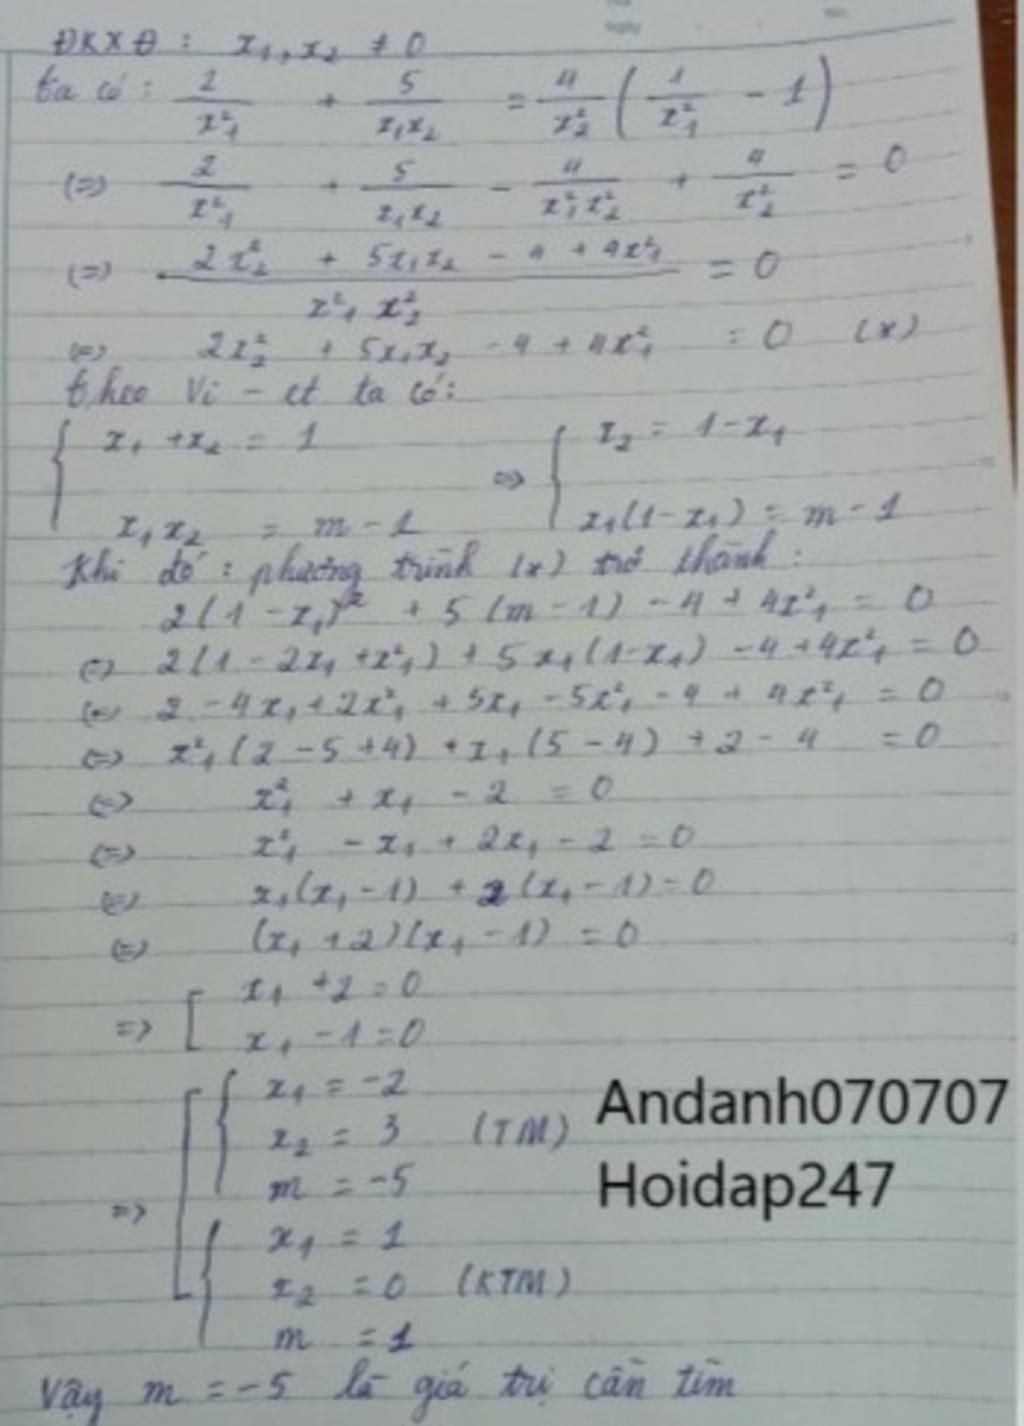 ĐKXĐ : x₁, x₂ ≠ 0
ta có : 2/x₁² + 5/(x₁x₂) = 4/x₂² (1/x₁² - 1)
(=) 2/x₁² + 5/(x₁x₂) - 4/(x₁²x₂²) + 4/x₂² = 0
(=) (2x₂² + 5x₁x₂ - 4 + 4x₁²)/(x₁² x₂²) = 0
(=) 2x₂² + 5x₁x₂ - 4 + 4x₁² = 0 (*)
theo Vi - et ta có :
{ x₁ + x₂ = 1 => { x₂ = 1 - x₁
x₁x₂ = m - 1 x₁(1 - x₁) = m - 1
Khi đó : phương trình (*) trở thành :
2(1 - x₁)² + 5(m - 1) - 4 + 4x₁² = 0
(=) 2(1 - 2x₁ + x₁²) + 5x₁(1 - x₁) - 4 + 4x₁² = 0
(=) 2 - 4x₁ + 2x₁² + 5x₁ - 5x₁² - 4 + 4x₁² = 0
(=) x₁²(2 - 5 + 4) + x₁(5 - 4) + 2 - 4 = 0
(=) x₁² + x₁ - 2 = 0
(=) x₁² - x₁ + 2x₁ - 2 = 0
(=) x₁(x₁ - 1) + 2(x₁ - 1) = 0
(=) (x₁ + 2)(x₁ - 1) = 0
=> [ x₁ + 2 = 0
x₁ - 1 = 0
=> [ { x₁ = -2
x₂ = 3 (TM)
m = -5
{ x₁ = 1
x₂ = 0 (KTM)
m = 1
Vậy m = -5 là giá trị cần tìm
Andanh070707
Hoidap247